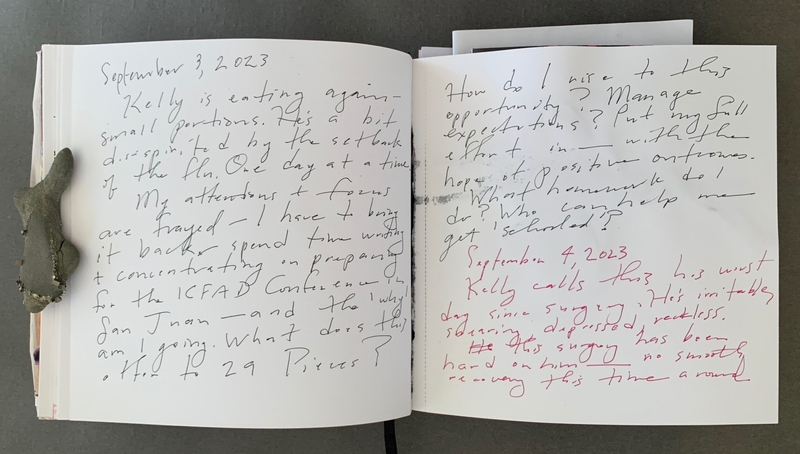 September 3, 2023
Kelly is eating again –
small portions. He's a bit
dispirited by the setback
of the flu. One day at a time
My attention + focus
are frayed – I have to bring
it back + spend time writing
+ concentrating on preparing
for the ICFAD Conference in
San Juan – and the "why"
am I going. What does this
offer to 29 Pieces?
How do I rise to this
opportunity? Manage
expectations? Put my full
effort in — with the
hope of positive outcomes.
What homework do I
do? Who can help me
get 'schooled'?
September 4, 2023
Kelly calls this his worst
day since surgery. He's irritable,
swearing, depressed, reckless.
This surgery has been
hard on him — no smooth
recovery this time around